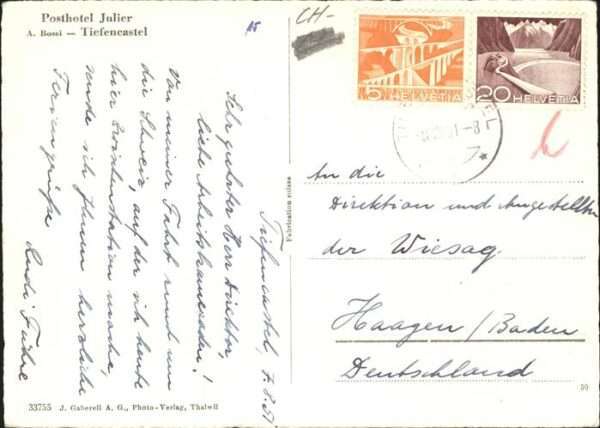 Posthotel Julier
A. Bossi — Tiefencastel
CH-
5 HELVETIA
20 HELVETIA
Tiefencastel, 7.8.51
Sehr geehrter Herr Direktor,
liebe Arbeitskameraden!
Von meiner Fahrt rund um
die Schweiz, auf der ich heute
hier Zwischenstation mache,
sende ich Ihnen herzliche
Feriengrüße
Rudi
An die
Direktion und Angestellten
der Wiesag.
Haagen/Baden
Deutschland
Fabrication suisse
33755 J. Gaberell A. G., Photo-Verlag, Thalwil